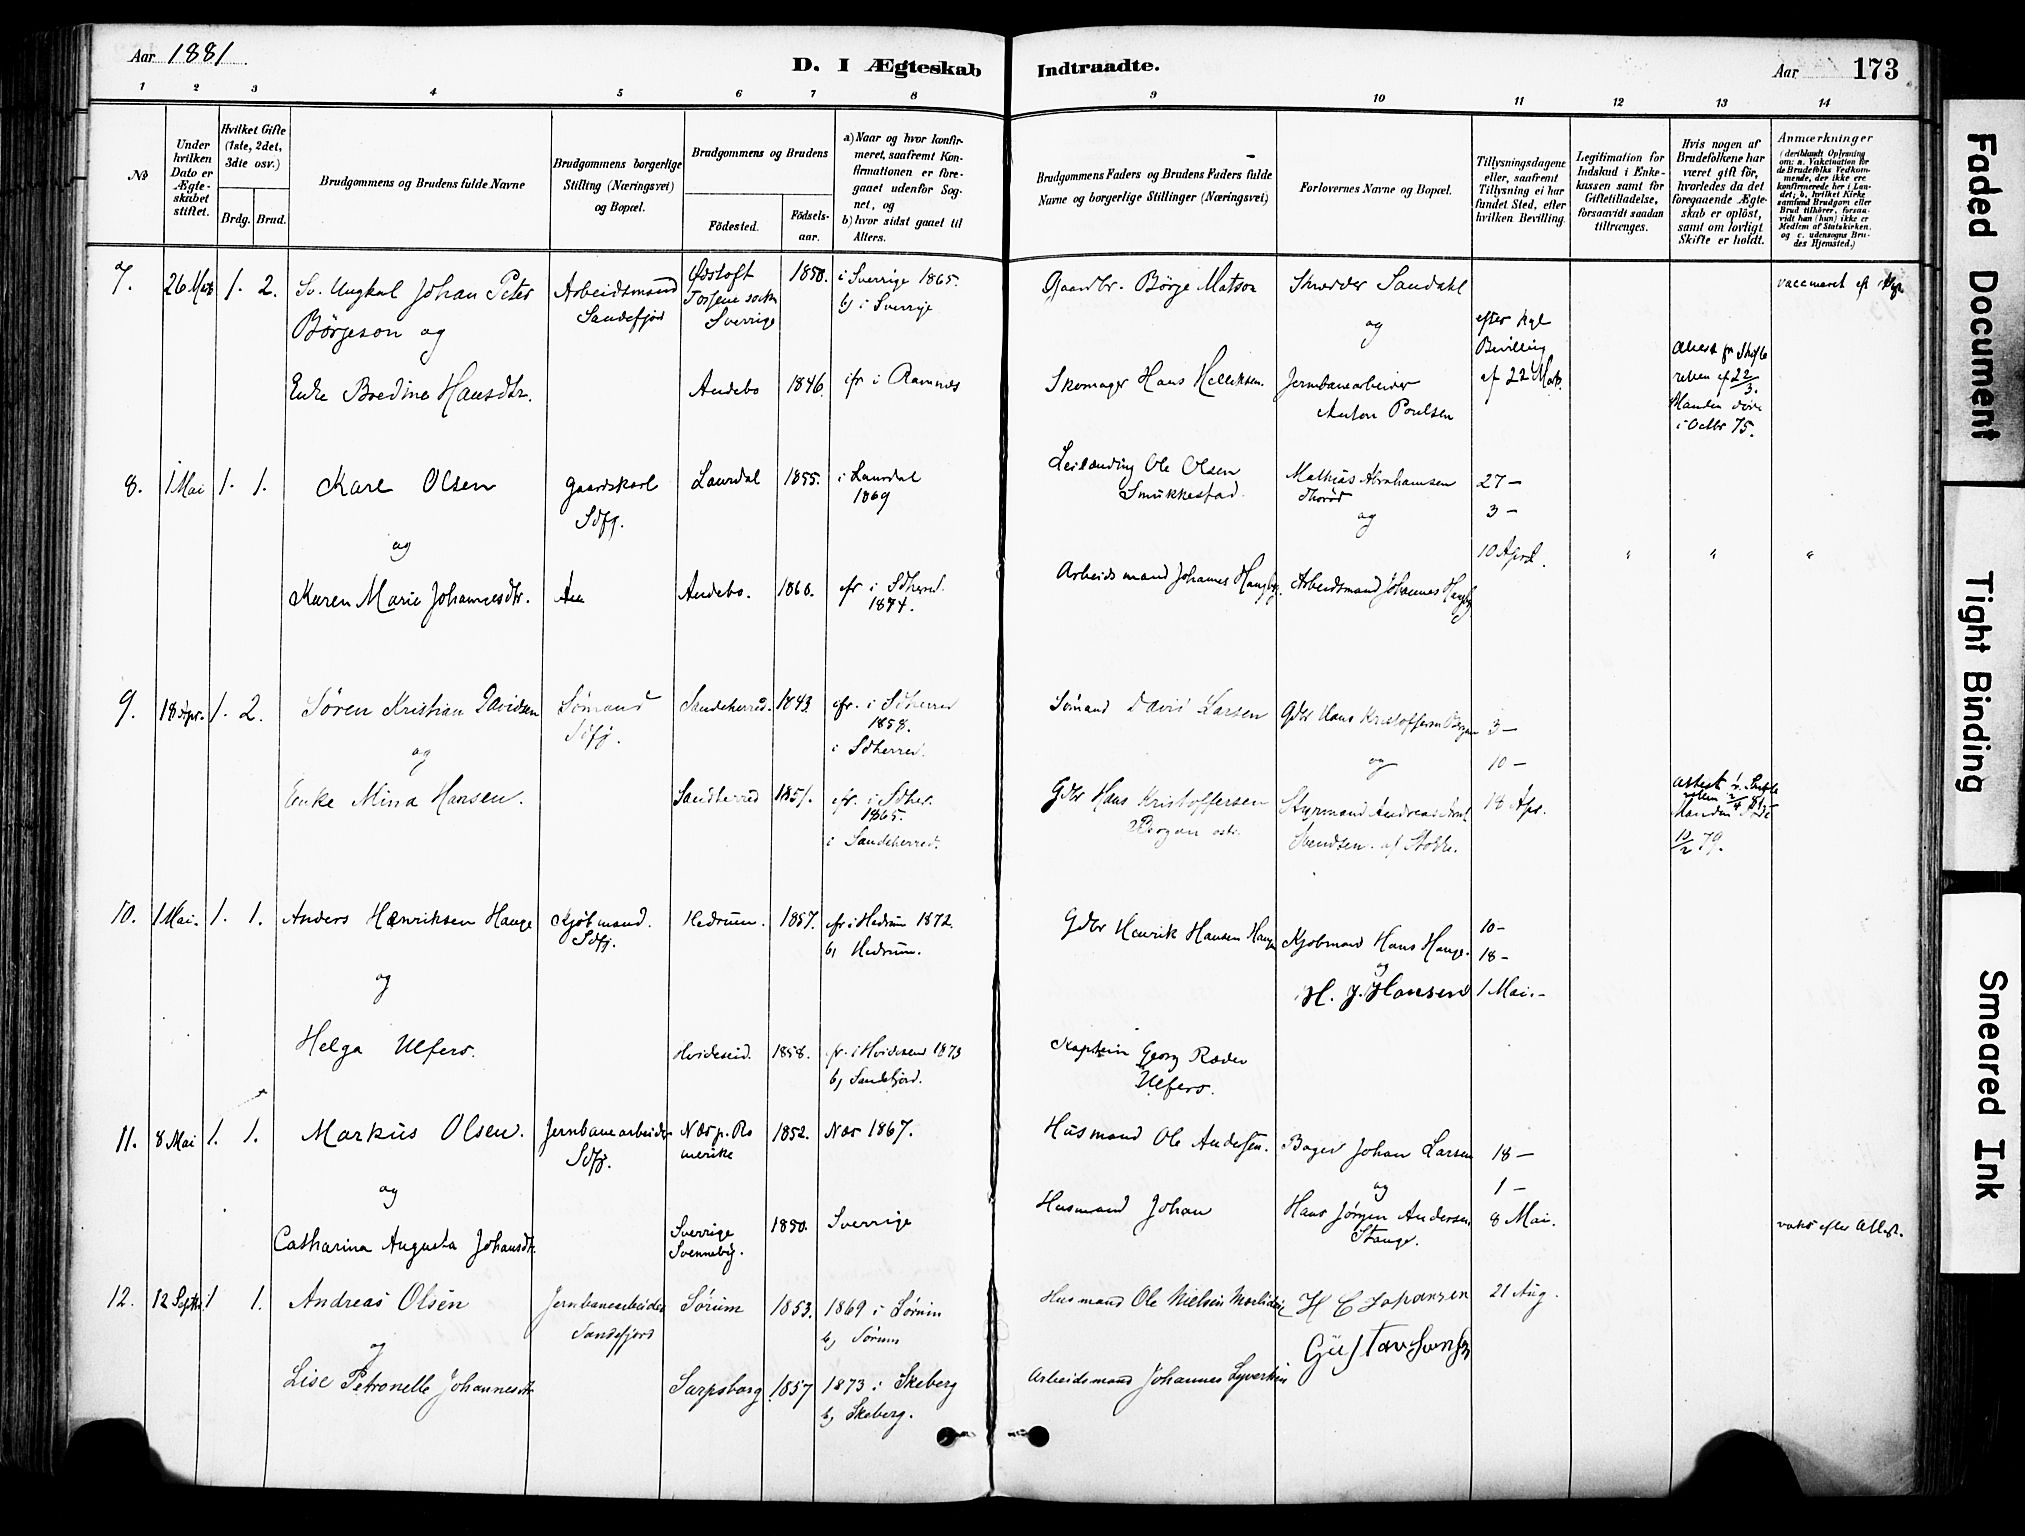 Aar 1881
D. I Ægteskab Indtraadte.
Aar 173
1 2 3 4 5 6 7 8 9 10 11 12 13 14
No
Under hvilken Dato er Ægteskabet stiftet.
Hvilket Gifte (1ste, 2det, 3die osv.)
Brdg. Brud.
Brudgommens og Brudens fulde Navne
Brudgommens borgerlige Stilling (Næringsvei) og Bopæl.
Brudgommens og Brudens
Fødested.
Fødselsaar.
a) Naar og hvor konfirmeret, saafremt Konfirmationen er foregaaet udenfor Sognet, og
b) hvor sidst gaaet til Alters.
Brudgommens Faders og Brudens Faders fulde Navne og borgerlige Stillinger (Næringsvei)
Forlovernes Navne og Bopæl.
Tillysningsdagene eller, saafremt Tillysning ei har fundet Sted, efter hvilken Bevilling.
Legitimation for Indskud i Enkekassen samt for Giftetilladelse, forsaavidt saadan tiltrænges.
Hvis nogen af Brudefolkene har været gift før, hvorledes da det foregaaende Ægteskab er opløst, samt om lovligt Skifte er holdt.
Anmærkninger
(deriblandt Oplysning om: a. Vakcination for de Brudefolks Vedkommende, der ikke ere konfirmerede her i Landet; b. hvilket Kirkesamfund Brudgom eller Brud tilhører, forsaavidt han (hun) ikke er Medlem af Statskirken, og c. udensogns Brudes Hjemsted.)
7. 26 1. 2. Sv. Ungkal Johan Peter Arbeidsmand 1850. i Sverrige 1865. Gaardbr. Børge Matson Sandahl
Børgeson og Sandefjord Sverrige b) i Sverrige og efter kgl
Bevilling
Enke Bredine Hansdtr. Andebo 1846. cfr i Ramnes Skomager Hans Helliksen. Jernbanearbeider af 22
Anton Poulsen
i Octbr 75.
8. 1 Mai 1. 1. Karl Olsen Gaardskarl Laurdal 1855. i Laurdal Leilænding Ole Olsen Mathias Abrahamsen 27 –
Sdfj. 1869 Smukkestad. Thorød
og og 3 –
10 April. " " "
Karen Marie Johannesdtr. Andebo. 1860. cfr i Sdherred. Arbeidsmand Johannes Arbeidsmand Johannes
1874.
9. 18 Apr. 1. 2. Søren Kristian Davidsen Sømand Sandeherred. 1843. cfr. i Sdherred Sømand David Larsen Gdbr Hans Kristoffersen 3 –
Sdfj. 1858.
og i Sdherred. og 10 –
Enke Mina Hansen. Sandherred 1851. cfr. i Sdher. Gdbr Hans Kristoffersen Styrmand Andreas 18 Apr.
1865. Bergan
i Sandeherred. Svendsen. af Stokke.
12/2 79.
10. 1 Mai. 1. 1. Anders Henriksen Hauge Kjøbmand. Hedrum. 1857. cfr i Hedrum 1872. Gdbr Henrik Hansen Kjøbmand Hans Hauge. 10 –
Sdfj. b) Hedrum. og 18 –
og H. J. Hansen 1 Mai. –
Helga Ulfers. Hvideseid. 1858. cfr. i Hvideseid 1873 Kaptein Georg Ræder
b) Sandefjord. Ulfers.
11. 8 Mai 1. 1. Markus Olsen. Jernbanearbeider Næs p. Ro 1852. Næs 1867. Husmand Ole Andersen. Bager Johan Larsen 18 –
Sdfj. merike
og og 1 –
Catharina Augusta Johansdtr. Sverrige 1850. Sverrige Husmand Johan Hans Jørgen Andersen 8 Mai.
Svenneby. Stange. efter Attest.
12. 12 1 1. Andreas Olsen Jernbanearbeider Sørum 1853. 1869 i Sørum Husmand Ole Nielsen H C Johansen 21 Aug.
Sandefjord b) Sørum
og
Lise Petronelle Johannesdtr Sarpsborg 1857 1873 i Skeberg Arbeidsmand Johannes
b) Skeberg.
Faded Document
Tight Binding
Smeared Ink